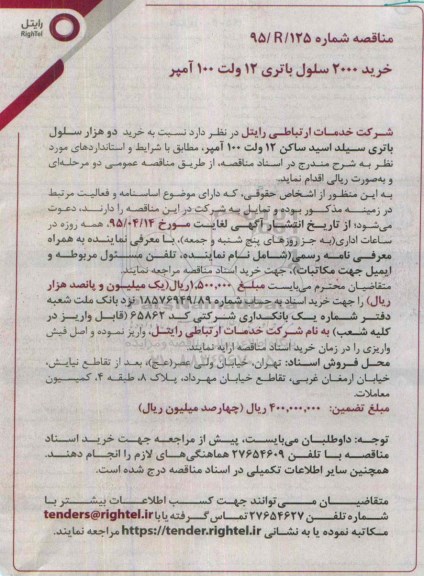 رایتل
RighTel
مناقصه شماره ۱۲۵/R/ ۹۵
خرید ۲۰۰۰ سلول باتری ۱۲ ولت ۱۰۰ آمپر
شرکت خدمات ارتباطی رایتل در نظر دارد نسبت به خرید دو هزار سلول
باتری سیلد اسید ساکن ۱۲ ولت ۱۰۰ آمپر، مطابق با شرایط و استانداردهای مورد
نظر به شرح مندرج در اسناد مناقصه، از طریق مناقصه عمومی دو مرحله‌ای
و به‌صورت ریالی اقدام نماید.
به این منظور از اشخاص حقوقی، که دارای موضوع اساسنامه و فعالیت مرتبط
در زمینه مذکور بوده و تمایل به شرکت در این مناقصه را دارند، دعوت
می‌شود؛ از تاریخ انتشار آگهی لغایت مورخ ۹۵/۰۴/۱۴، همه روزه در
ساعات اداری(به جز روزهای پنج شنبه و جمعه)، با معرفی نماینده به همراه
معرفی نامه رسمی(شامل نام نماینده، تلفن مسئول مربوطه و
ایمیل جهت مکاتبات)، جهت خرید اسناد مناقصه مراجعه نمایند.
متقاضیان محترم می‌بایست مبلغ ۱,۵۰۰,۰۰۰ ریال(یک میلیون و پانصد هزار
ریال) را جهت خرید اسناد به حساب شماره ۱۸۵۷۶۹۴۹/۸۹ نزد بانک ملت شعبه
دفتر شماره یک بانکداری شرکتی کد ۶۵۸۶۲ (قابل واریز در
کلیه شعب) به نام شرکت خدمات ارتباطی رایتل، واریز نموده و اصل فیش
واریزی را در زمان خرید اسناد مناقصه ارایه نمایند.
محل فروش اسناد: تهران، خیابان ولی عصر(عج)، بعد از تقاطع نیایش،
خیابان ارمغان غربی، تقاطع خیابان مهرداد، پلاک ۸، طبقه ۴، کمیسیون
معاملات.
مبلغ تضمین: ۴۰۰,۰۰۰,۰۰۰ ریال (چهارصد میلیون ریال)
توجه: داوطلبان می‌بایست، پیش از مراجعه جهت خرید اسناد
مناقصه با تلفن ۲۷۶۵۴۶۰۹ هماهنگی‌های لازم را انجام دهند.
همچنین سایر اطلاعات تکمیلی در اسناد مناقصه درج شده است.
متقاضیان می توانند جهت کسب اطلاعات بیشتر با
شماره تلفن ۲۷۶۵۴۶۲۷ تماس گرفته یا با tenders@rightel.ir
مکاتبه نموده یا به نشانی https://tender.rightel.ir مراجعه نمایند.